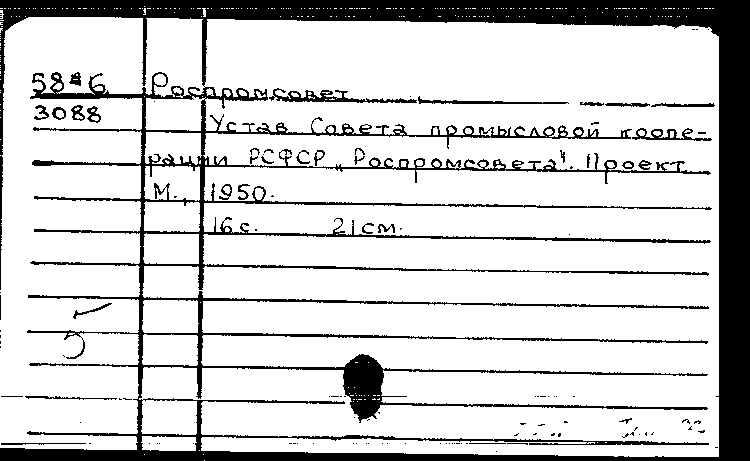 58-6 Роспромсовет
3088
Устав Совета промысловой коопе-
рации РСФСР „Роспромсовета". Проект
М., 1950.
16 с. 21 см.
5